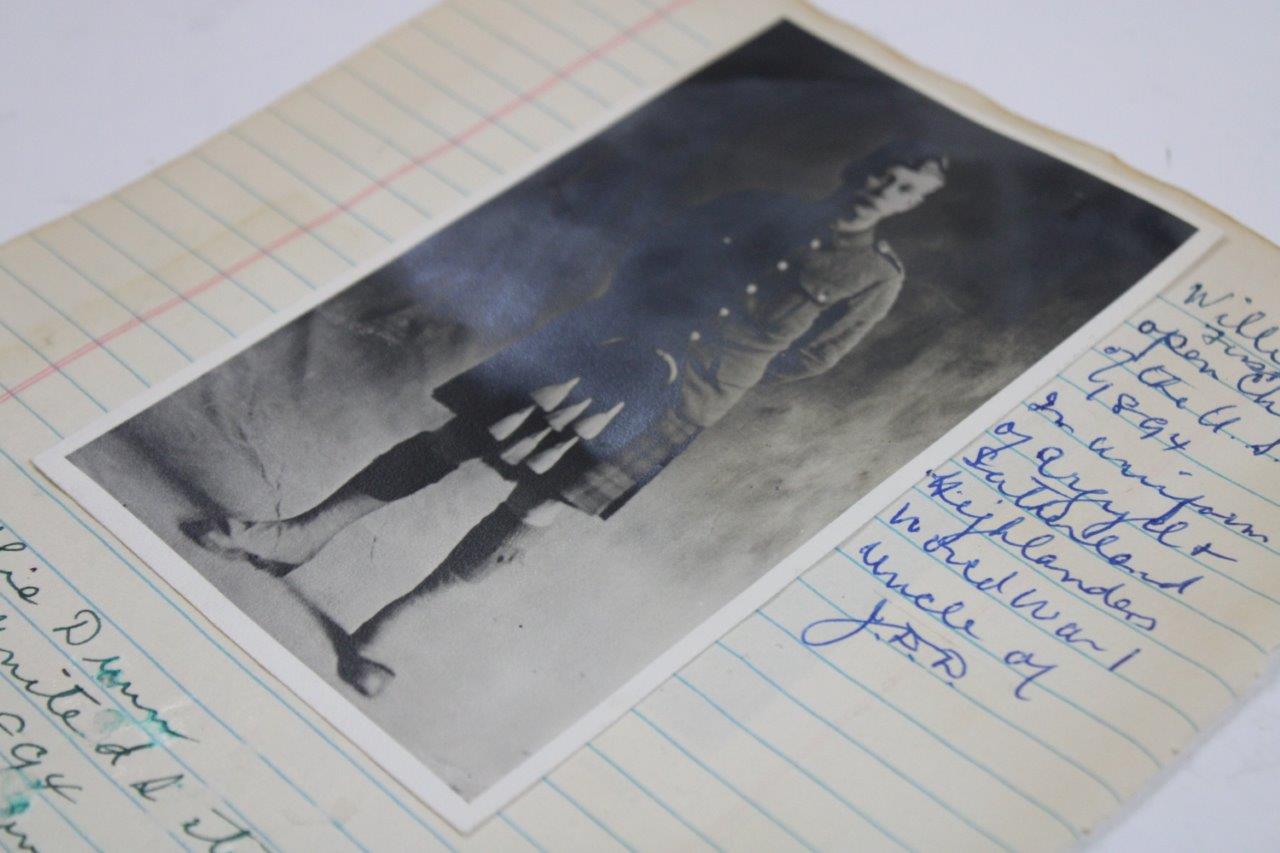 Willie
First
open Ch
of the U.S.
1894
In uniform
of argyll +
Sutherland
Highlanders
World War 1
uncle of
J.D.D.
lie Dunn
United St
894